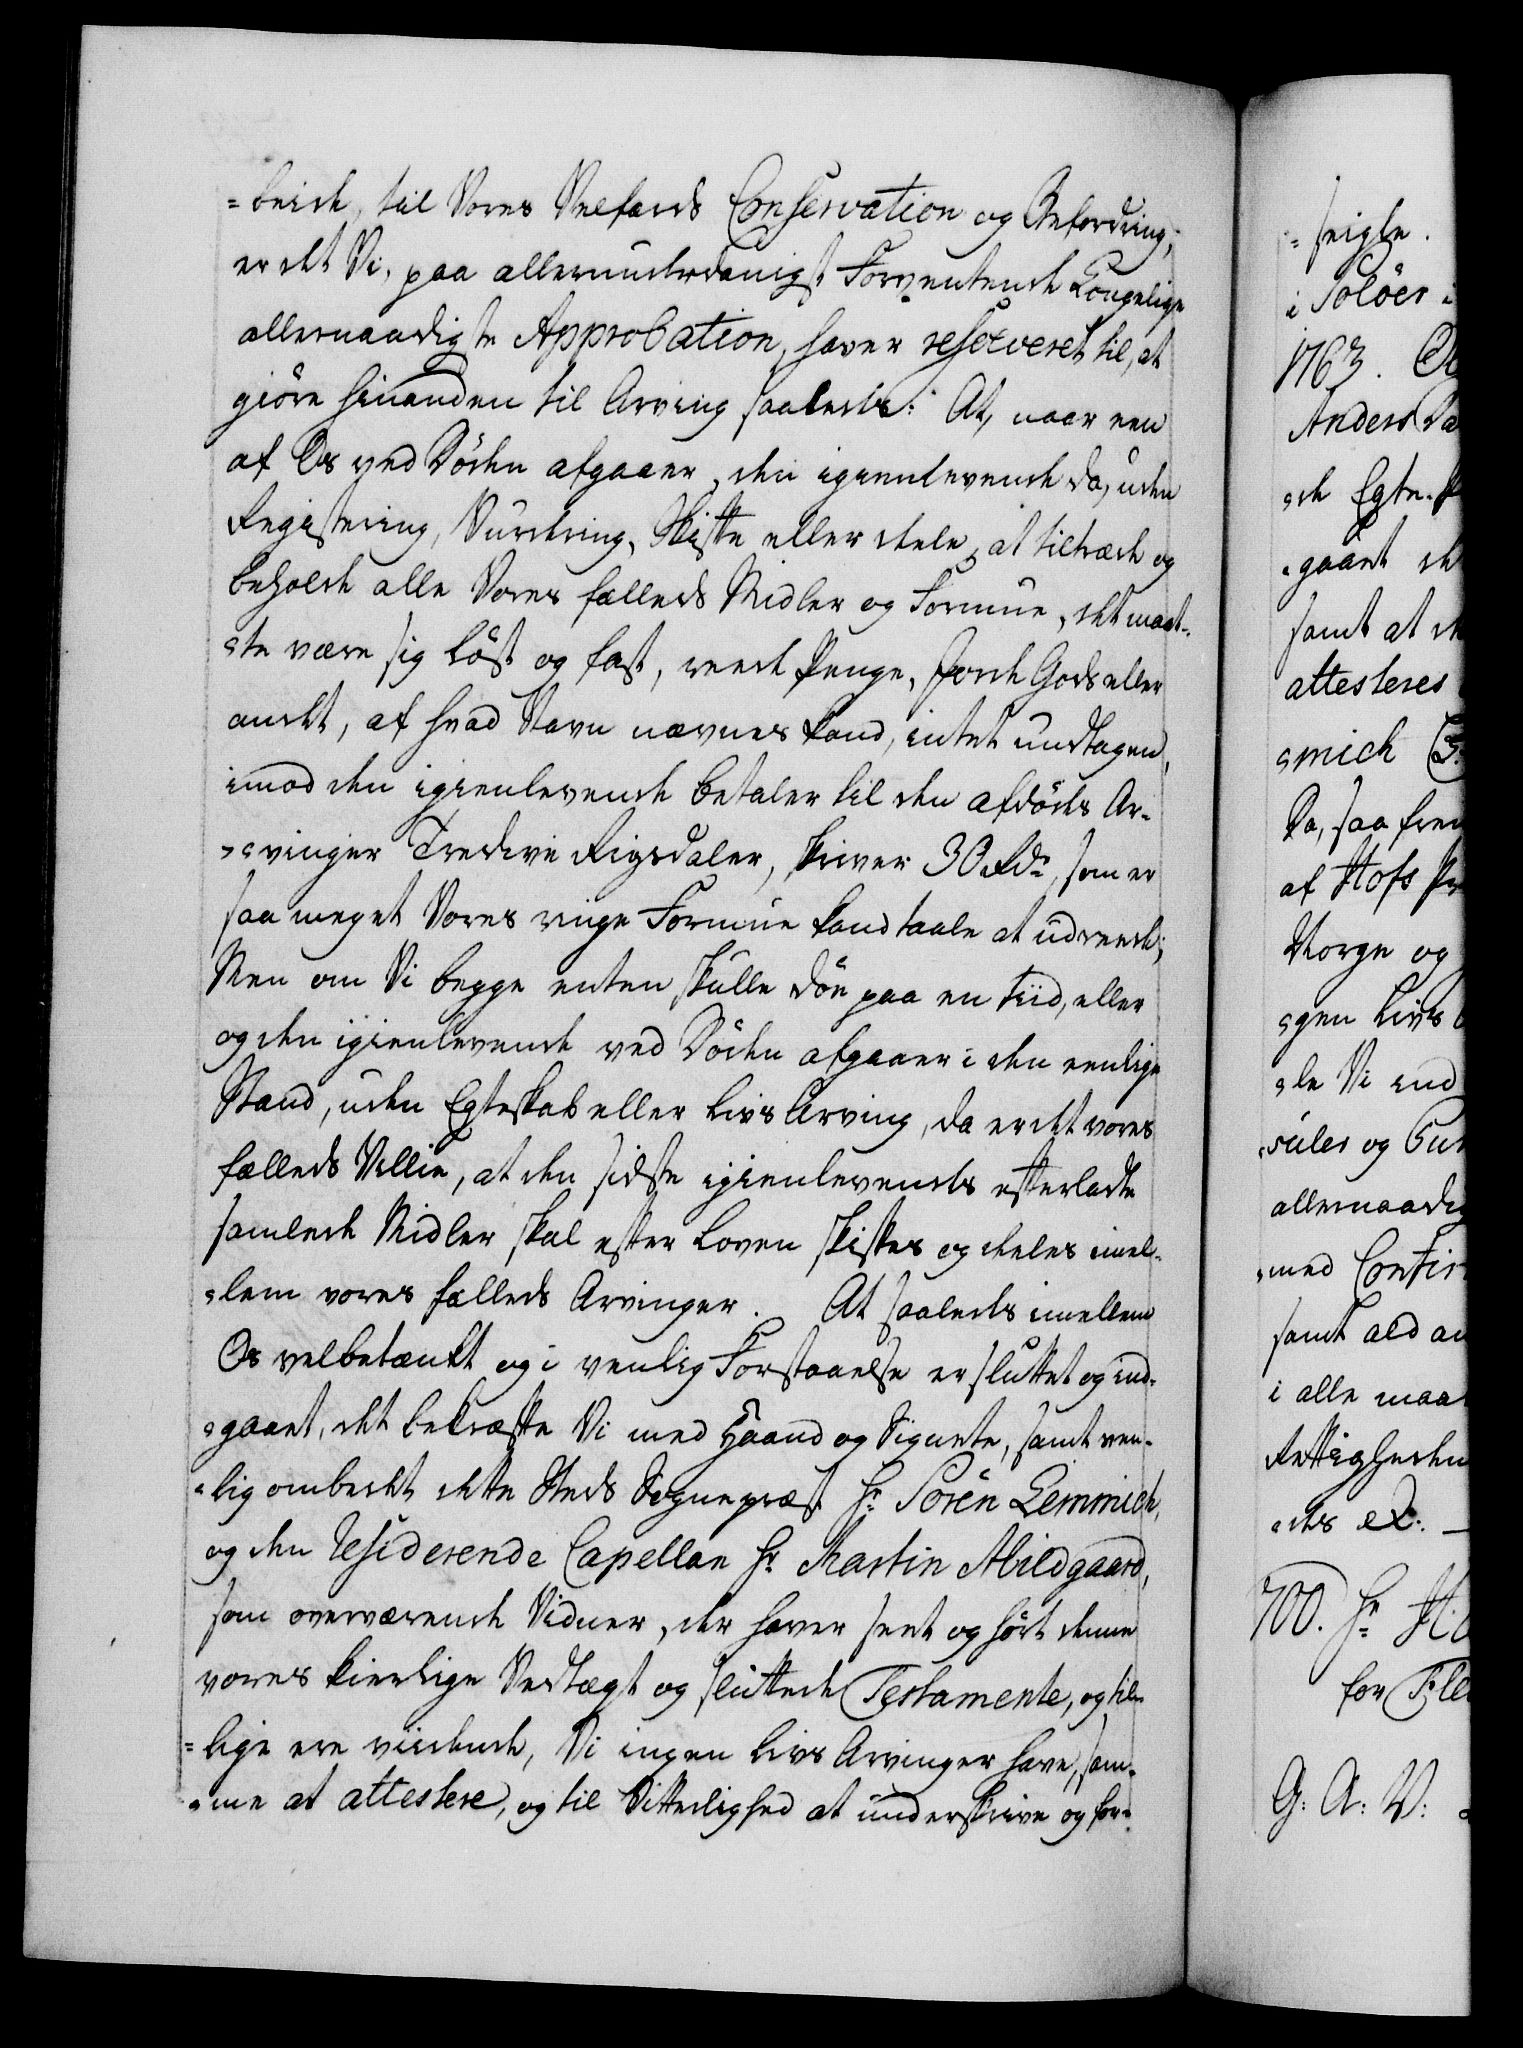 =beide, til Vores Velfærds Conservation og Befordring,
er det Vi, paa allerunderdanigst Forventende Kongelige
allernaadigste Approbation, haver resolveret til, at
giöre hinanden til Arving saaledes: At, naar een
af Os ved Döden afgaaer, den igienlevende da, uden
Registering, Vurdring, Skifte eller dele, at tiltræde og
beholde alle Vores fælleds Midler og Formue, det maat-
=te være sig löst og fast, reede Penge, Jorde Gods eller
andet, af hvad Navn nævnes kand, intet undtagen,
imod den igienlevende betaler til den afdödes Ar-
=vinger Tredive Rigsdaler, skriver 30 Rdr, som er
saa meget Vores ringe Formue kand taale at udreede;
Men om Vi begge enten skulle döe paa en tiid, eller
og den igienlevende ved Döden afgaaer i den eenlige
Stand, uden Egteskab eller Livs Arving, da er det vores
fælleds Villie, at den sidste igienlevendes efterladte
samlede Midler skal efter Loven skiftes og deeles imel-
=lem vores fælleds Arvinger. At saaledes imellem
Os velbetænkt og i venlig Forstaaelse er sluttet og ind-
=gaaet, det bekræfte Vi med Haand og Signete, samt ven-
=lig ombedet dette Steds Sognepræst Hr Sören Lemmich,
og den Residerende Capellan Hr Martin Abildgaard,
som overværende Vidner, der haver seet og hört denne
vores kierlige Vedtægt og sluttede Testamente, og til-
=lige ere vidende, Vi ingen Livs Arvinger have, sam-
=me at attestere, og til Vitterlighed at underskrive og for-
=seigle.
i Solöer i
1763.
Anders Da
=de Egte-P
=gaaet de
samt at de
attesteres
=mich
Da, saa frem
af Hofs Pr
Norge og
=gen Livs
=le Vi ind
=suler og Gun
allernaadig
=med Confir
samt ald an
i alle maa
Rettigheden
=des etc. —
700. Hr
for
G: A: V: